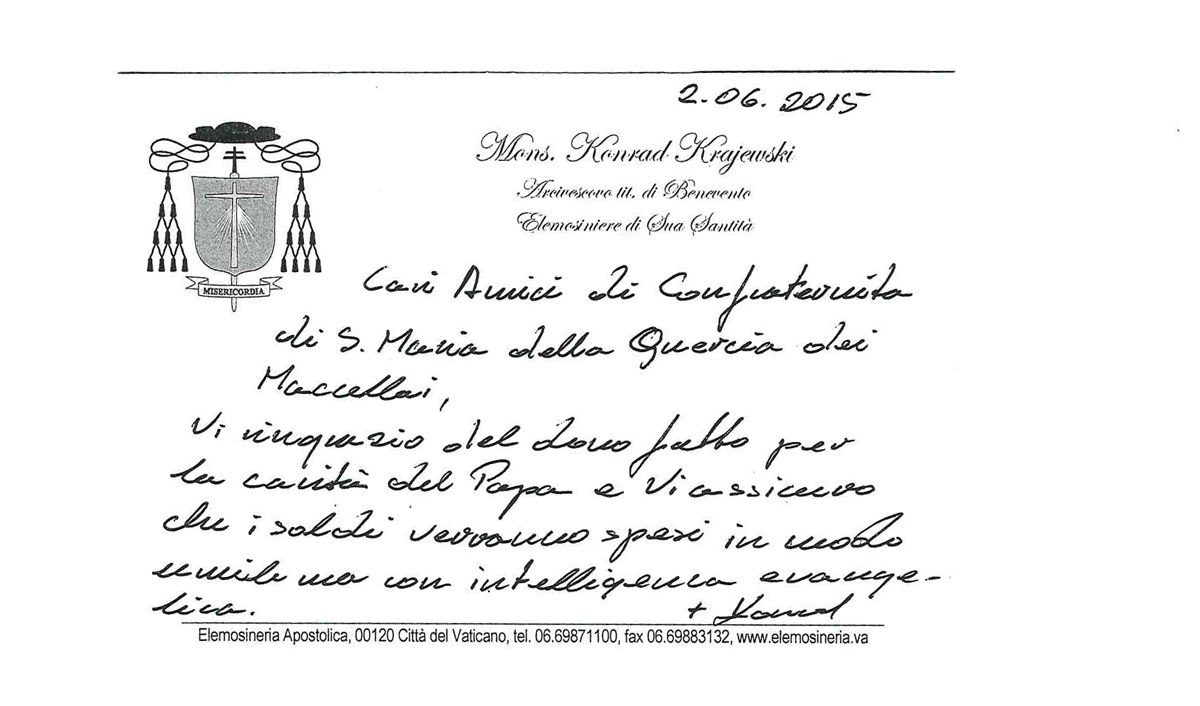 2.06.2015
Mons. Konrad Krajewski
Arcivescovo tit. di Benevento
Elemosiniere di Sua Santità
MISERICORDIA
Cari Amici di Confraternita
di S. Maria della Quercia dei
Maccellai,
Vi ringrazio del dono fatto per
la carità del Papa e Vi assicuro
che i soldi verranno spesi in modo
umile ma con intelligenza evange-
lica.
+ Konrad
Elemosineria Apostolica, 00120 Città del Vaticano, tel. 06.69871100, fax 06.69883132, www.elemosineria.va